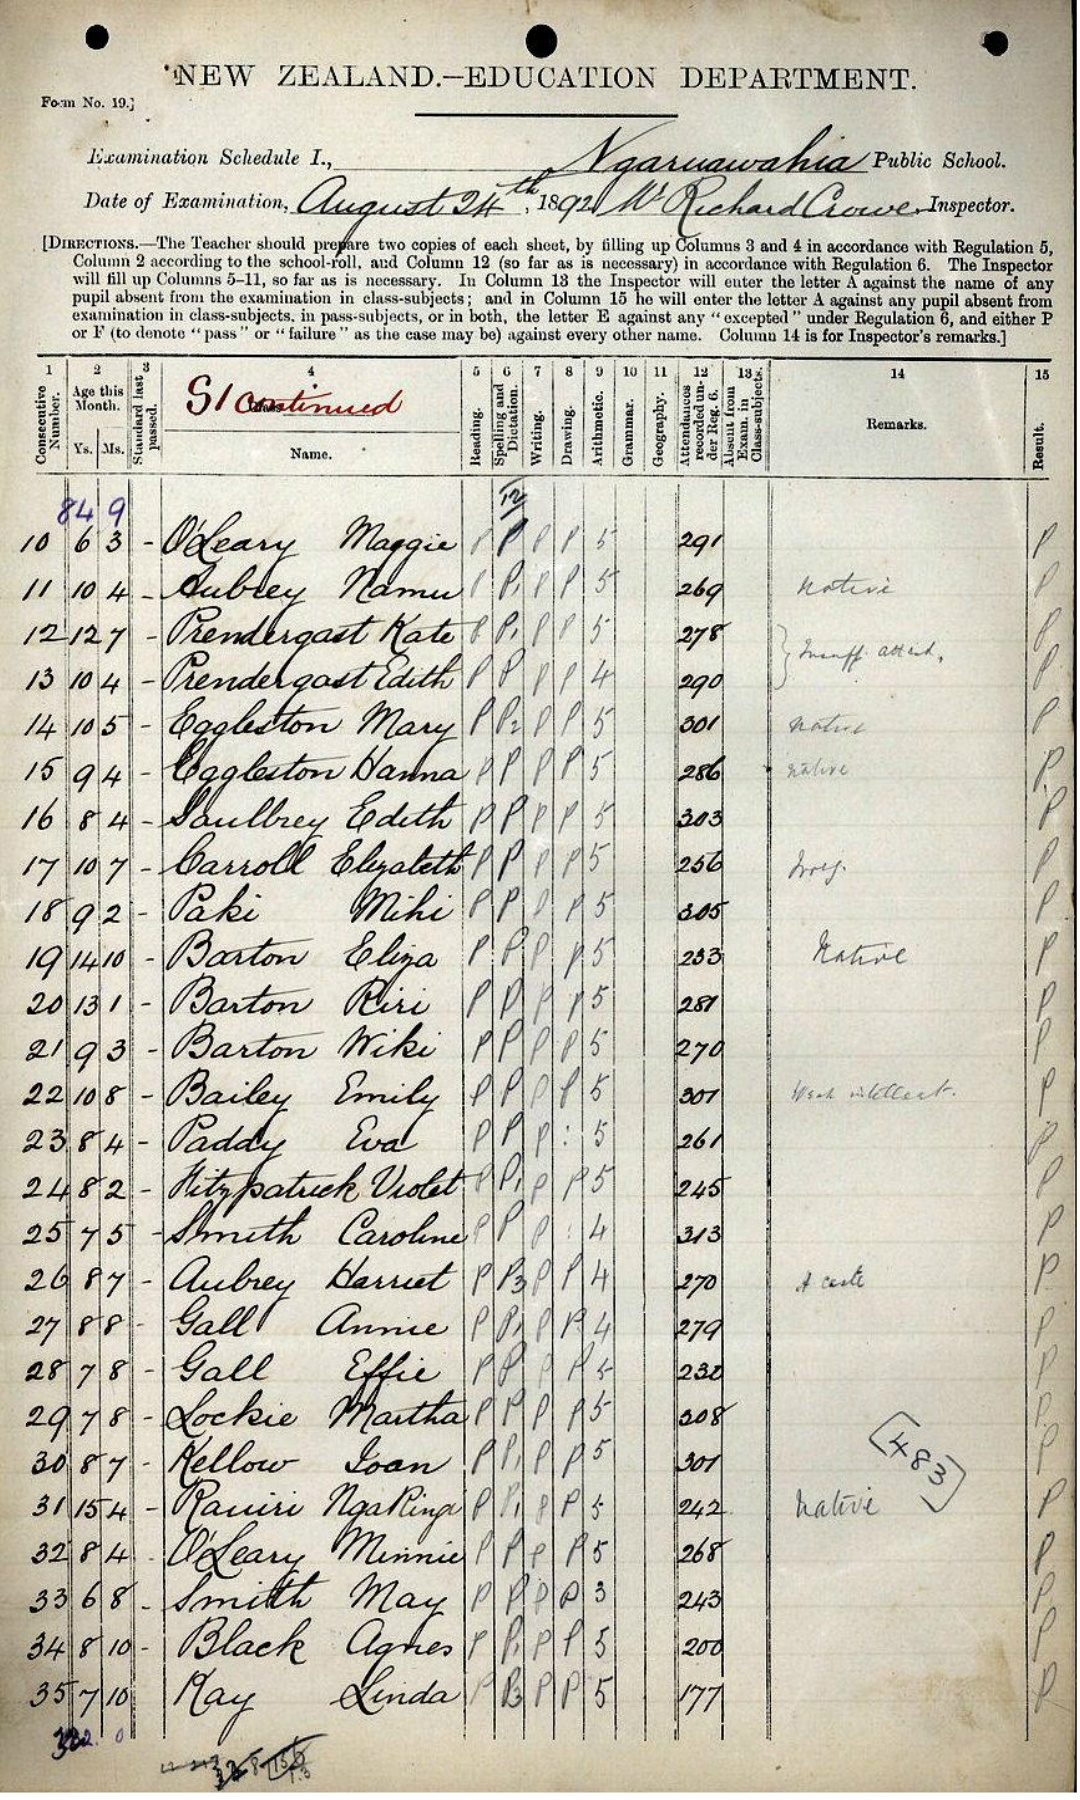 NEW ZEALAND.—EDUCATION DEPARTMENT.
Form No. 19.]
Examination Schedule I., Ngaruawahia Public School.
Date of Examination, August 24th, 1892. Mr Richard Crowe, Inspector.
[DIRECTIONS.—The Teacher should prepare two copies of each sheet, by filling up Columns 3 and 4 in accordance with Regulation 5,
Column 2 according to the school-roll, and Column 12 (so far as is necessary) in accordance with Regulation 6. The Inspector
will fill up Columns 5-11, so far as is necessary. In Column 13 the Inspector will enter the letter A against the name of any
pupil absent from the examination in class-subjects; and in Column 15 he will enter the letter A against any pupil absent from
examination in class-subjects, in pass-subjects, or in both, the letter E against any "excepted" under Regulation 6, and either P
or F (to denote "pass" or "failure" as the case may be) against every other name. Column 14 is for Inspector's remarks.]
1 2 3 4 5 6 7 8 9 10 11 12 13 14 15
Consecutive Number. Age this Month. Ys. Ms. Standard last passed. S1 continued Name. Reading. Spelling and Dictation. Writing. Drawing. Arithmetic. Grammar. Geography. Attendances recorded under Reg. 6. Absent from Exam. in Class-subjects. Remarks. Result.
84 9 12
10 6 3 - O'Leary Maggie P P P P 5 291 P
11 10 4 - Aubrey Namu P P1 P P 5 269 native P
12 12 7 - Prendergast Kate P P1 P P 5 278 P
Insuff. attend.
13 10 4 - Prendergast Edith P P P P 4 290 P
14 10 5 - Eggleston Mary P P2 P P 5 301 native P
15 9 4 - Eggleston Hanna P P P P 5 286 native P
16 8 4 - Saulbrey Edith P P P P 5 303 P
17 10 7 - Carroll Elizabeth P P P P 5 256 Irreg. P
18 9 2 - Paki Mihi P P P P 5 305 P
19 14 10 - Barton Eliza P P P P 5 233 Native P
20 13 1 - Barton Riri P P P P 5 281 P
21 9 3 - Barton Wiki P P P P 5 270 P
22 10 8 - Bailey Emily P P P P 5 301 Weak intellect. P
23 8 4 - Paddy Eva P P P : 5 261 P
24 8 2 - Fitzpatrick Violet P P1 P P 5 245 P
25 7 5 - Smith Caroline P P P : 4 313 P
26 8 7 - Aubrey Harriet P P3 P P 4 270 caste P
27 8 8 - Gall Annie P P1 P P 4 279 P
28 7 8 - Gall Effie P P P P 5 232 P
29 7 8 - Lockie Martha P P P P 5 308 P
30 8 7 - Kellow Joan P P1 P P 5 301 483 P
31 15 4 - Rauiri NgaRingi P P1 P P 5 242 native P
32 8 4 - O'Leary Minnie P P P P 5 268 P
33 6 8 - Smith May P P P P 3 243 P
34 8 10 - Black Agnes P P1 P P 5 200 P
35 7 10 Kay Linda P P3 P P 5 177 P
332. 0